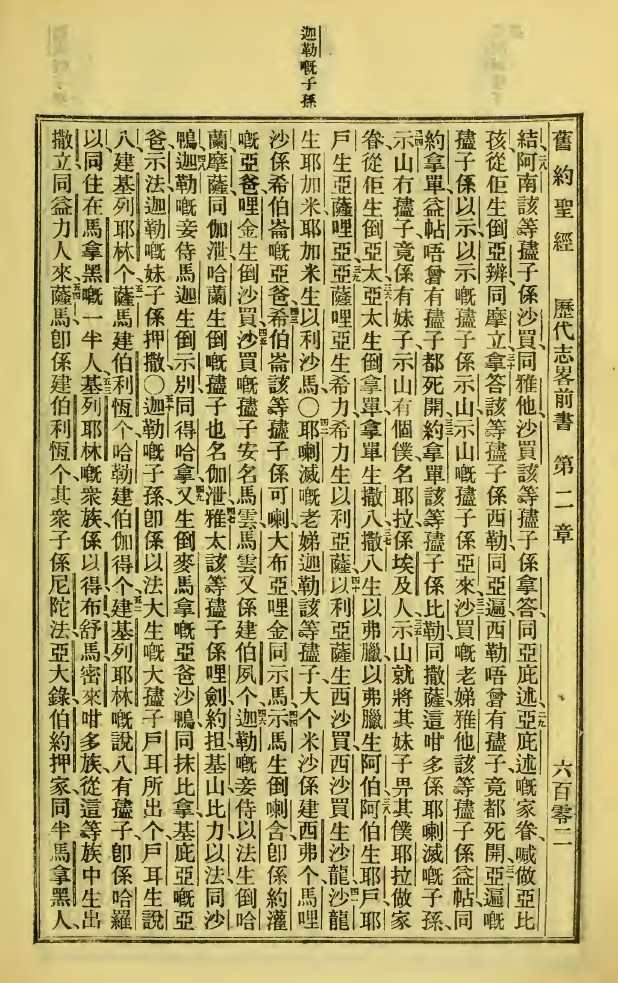 迦勒嘅子孫
舊約聖經 歷代志畧前書 第二章 六百零二
結阿南該等孻子係沙買同雅他沙買該等孻子係拿答同亞庇述亞庇述嘅家眷喊做亞比
孩從佢生倒亞辨同摩立拿答該等孻子係西勒同亞遍西勒唔曾有孻子竟都死開亞遍嘅
孻子係以示以示嘅孻子係示山示山嘅孻子係亞來沙買嘅老娣雅他該等孻子係益帖同
約拿單益帖唔曾有孻子都死開約拿單該等孻子係比勒同撒薩這咁多係耶喇滅嘅子孫
示山冇孻子竟係有妹子示山有個僕名耶拉係埃及人示山就將其妹子畀其僕耶拉做家
眷從佢生倒亞太亞太生倒拿單拿單生撒八撒八生以弗臘以弗臘生阿伯阿伯生耶戶耶
戶生亞薩哩亞亞薩哩亞生希力希力生以利亞薩以利亞薩生西沙買西沙買生沙龍沙龍
生耶加米耶加米生以利沙馬〇耶喇滅嘅老娣迦勒該等孻子大个米沙係建西弗个馬哩
沙係希伯崙嘅亞爸希伯崙該等孻子係可喇大布亞哩金同示馬示馬生倒喇含卽係約灌
嘅亞爸哩金生倒沙買沙買嘅孻子安名馬雲馬雲又係建伯夙个迦勒嘅妾侍以法生倒哈
蘭摩薩同伽泄哈蘭生倒嘅孻子也名伽泄雅太該等孻子係哩劍約担基山比力以法同沙
鴨迦勒嘅妾侍馬迦生倒示別同得哈拿又生倒麥馬拿嘅亞爸沙鴨同抹比拿基庇亞嘅亞
爸示法迦勒嘅妹子係押撒〇迦勒嘅子孫卽係以法大生嘅大孻子戶耳所出个戶耳生說
八建基列耶林个薩馬建伯利恆个哈勒建伯伽得个建基列耶林嘅說八有孻子卽係哈羅
以同住在馬拿黑嘅一半人基列耶林嘅衆族係以得布舒馬密來咁多族從這等族中生出
撒立同益力人來薩馬卽係建伯利恆个其衆子係尼陀法亞大錄伯約押家同半馬拿黑人